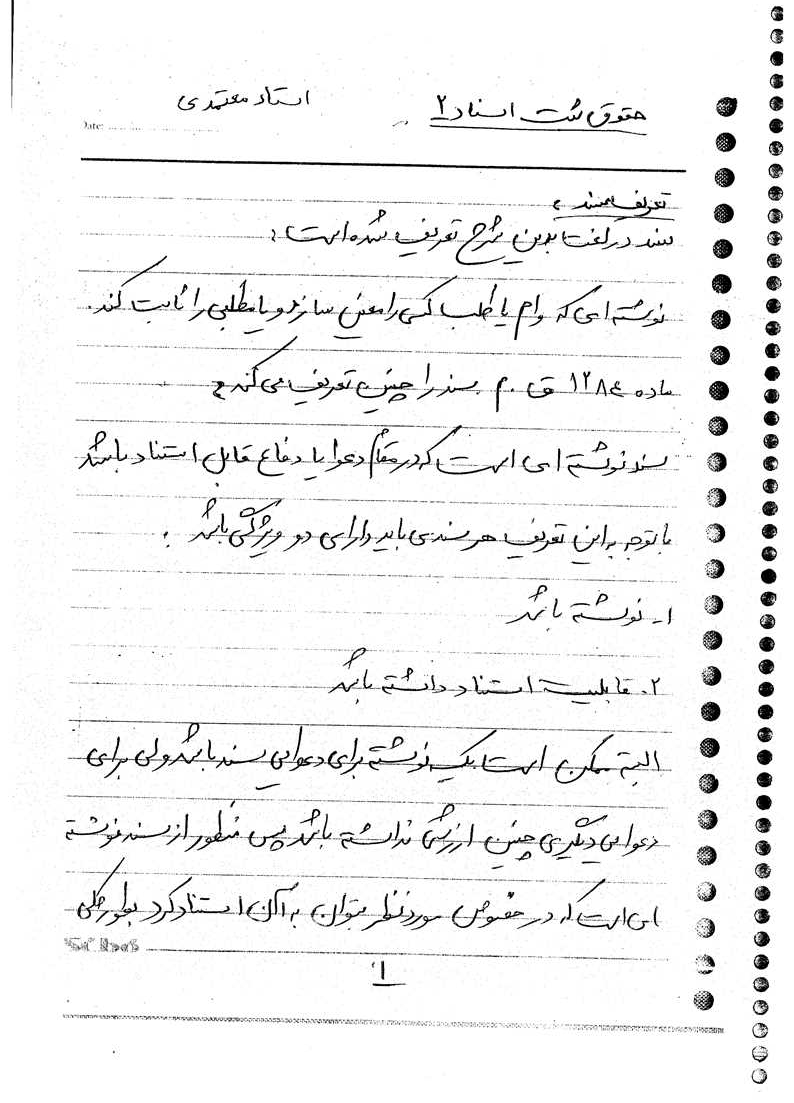 حقوق ثبت اسناد ۲
استاد معتمدی
Date:
تعریف سند :
سند در لغت بدین شرح تعریف شده است :
نوشته ای که وام یا طلب کسی را معین سازد و یا مطلبی را ثابت کند.
ماده ۱۲۸۴ ق . م سند را چنین تعریف می کند :
سند نوشته ای است که در مقام دعوا یا دفاع قابل استناد باشد
با توجه به این تعریف هر سندی باید دارای دو ویژگی باشد :
۱- نوشته باشد
۲- قابلیت استناد داشته باشد
البته ممکن است یک نوشته برای دعوایی سند باشد ولی برای
دعوایی دیگری چنین ارزشی نداشته باشد پس منظور از سند نوشته
ای است که در خصوص مورد نظر بتوان به آن استناد کرد بطور کلی
۱